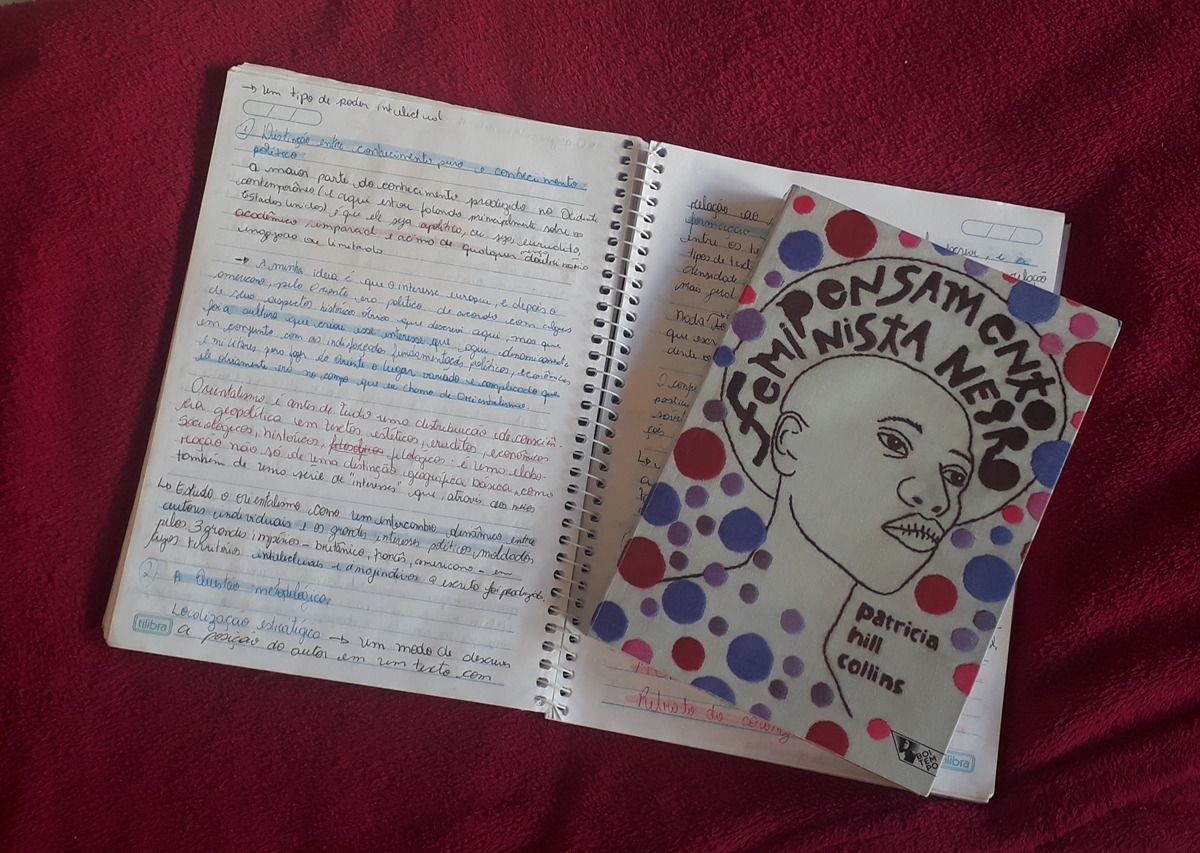 → um tipo de poder intelectual
① Distinção entre conhecimento puro e conhecimento
político
a maior parte do conhecimento produzido no Ocidente
contemporâneo (e aqui estou falando principalmente sobre os
Estados unidos), é que ele seja apolítico, ou seja, erudito,
acadêmico, imparcial e acima de qualquer doutrinária
ou limitada
→ A minha ideia é que o interesse europeu, e depois o
americano, pelo Oriente era político de acordo com alguns
de seus aspectos históricos óbvios que descrevi aqui, mas que
foi a cultura que criou esse interesse, que agiu dinamicamente
em conjunto com as indisfarçadas fundamentações políticas, econômicas
e militares para fazer do Oriente o lugar variado e complicado que
ele obviamente era no campo que eu chamo de Orientalismo.
Orientalismo é antes de tudo uma distribuição de consciên-
cia geopolítica em textos estéticos, eruditos, econômicos
sociológicos, históricos, filológicos: é uma elabo-
ração não só de uma distinção geográfica básica, como
também de uma série de "interesses" que, através dos meios
↳ Estudo o orientalismo como um intercâmbio dinâmico entre
autores individuais e os grandes interesses políticos moldados
pelos 3 grandes impérios - britânico, francês, americano - em
território intelectuais e a escrita foi produzida.
② A Questão metodológica,
Localização estratégica → um modo de descrever
a posição do autor em um texto com
tilibra
relação ao
formação
entre os te
tipos de text
densidade
mais
Nada
que escr
desde o
relação
Retrato do
PENSAMENTO
FEMINISTA NEGRO
patricia
hill
collins
BOITEMPO
tilibra